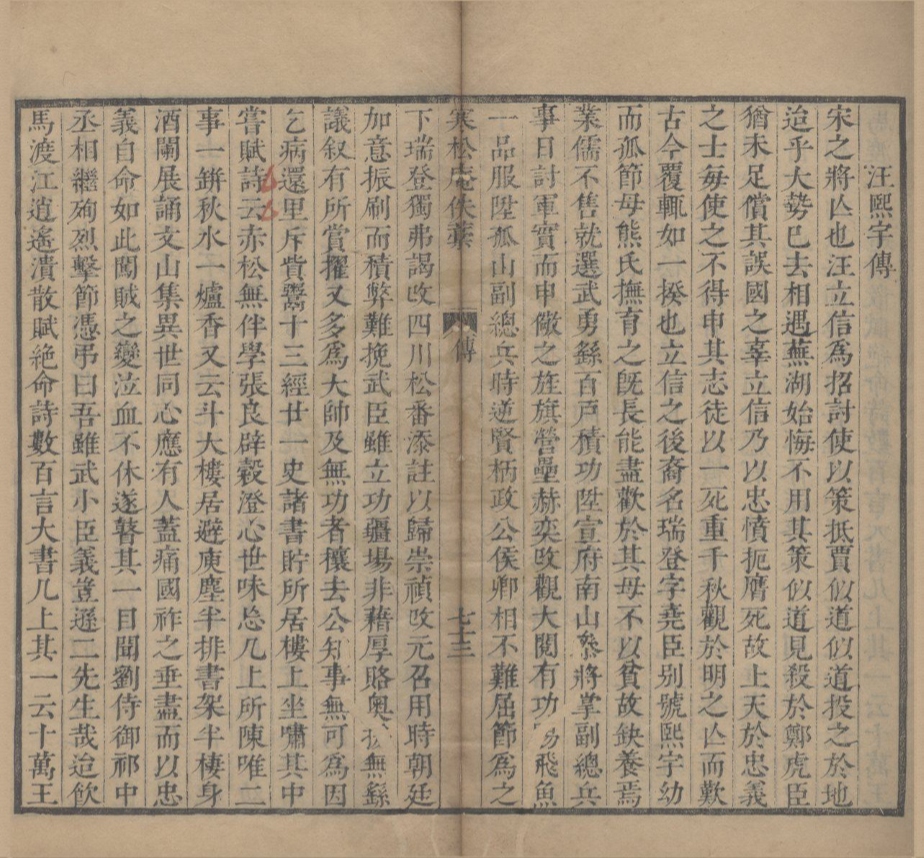 汪熙宇傳
宋之將亾也汪立信爲招討使以策抵賈似道似道投之於地
迨乎大勢已去相遇蕪湖始悔不用其策似道見殺於鄭虎臣
猶未足償其誤國之辜立信乃以忠憤扼膺死故上天於忠義
之士每使之不得申其志徒以一死重千秋觀於明之亾而歎
古今覆輒如一揆也立信之後裔名瑞登字堯臣别號熙宇幼
而孤節母熊氏撫育之旣長能盡歡於其母不以貧故缺養焉
業儒不售就選武勇繇百戸積功陞宣府南山叅將掌副總兵
事日討軍實而申儆之旌旗營壘赫奕改觀大閱有功 飛魚
一品服陞孤山副總兵時逆賢柄政公侯卿相不難屈節爲之
寒松庵佚藁
傳
七十三
下瑞登獨弗謁改四川松番添註以歸崇禎改元召用時朝廷
加意振刷而積弊難挽武臣雖立功疆場非藉厚賂奥 無繇
議叙有所賞擢又多爲大帥及無功者攘去公知事無可爲因
乞病還里斥貲鬻十三經廿一史諸書貯所居樓上坐嘯其中
嘗賦詩云赤松無伴學張良辟穀澄心世味忘几上所陳唯二
事一缾秋水一爐香又云斗大樓居避庾塵半排書架半棲身
酒闌展誦文山集異世同心應有人蓋痛國祚之垂盡而以忠
義自命如此闖賊之變泣血不休遂瞽其一目聞劉侍御祁中
丞相繼殉烈擊節憑弔曰吾雖武小臣義豈遜二先生哉迨飲
馬渡江逍遙潰散賦絶命詩數百言大書几上其一云十萬王